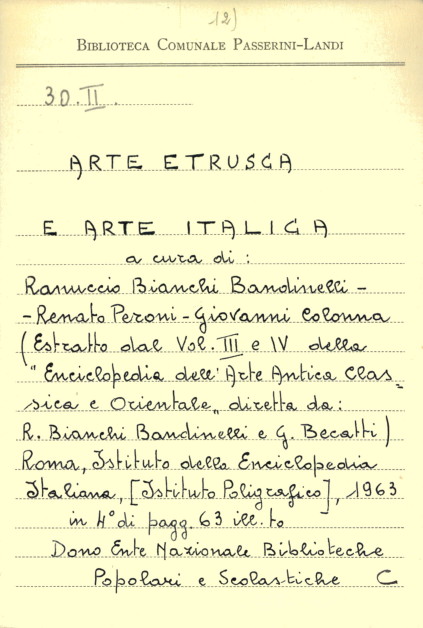 12)
BIBLIOTECA COMUNALE PASSERINI-LANDI
30.II.
ARTE ETRUSCA
E ARTE ITALICA
a cura di:
Ranuccio Bianchi Bandinelli -
- Renato Peroni - Giovanni Colonna
(Estratto dal Vol. III e IV della
"Enciclopedia dell'Arte Antica Clas-
sica e Orientale„ diretta da:
R. Bianchi Bandinelli e G. Becatti)
Roma, Istituto della Enciclopedia
Italiana, [Istituto Poligrafico], 1963
in 4° di pagg. 63 ill.to
Dono Ente Nazionale Biblioteche
Popolari e Scolastiche C